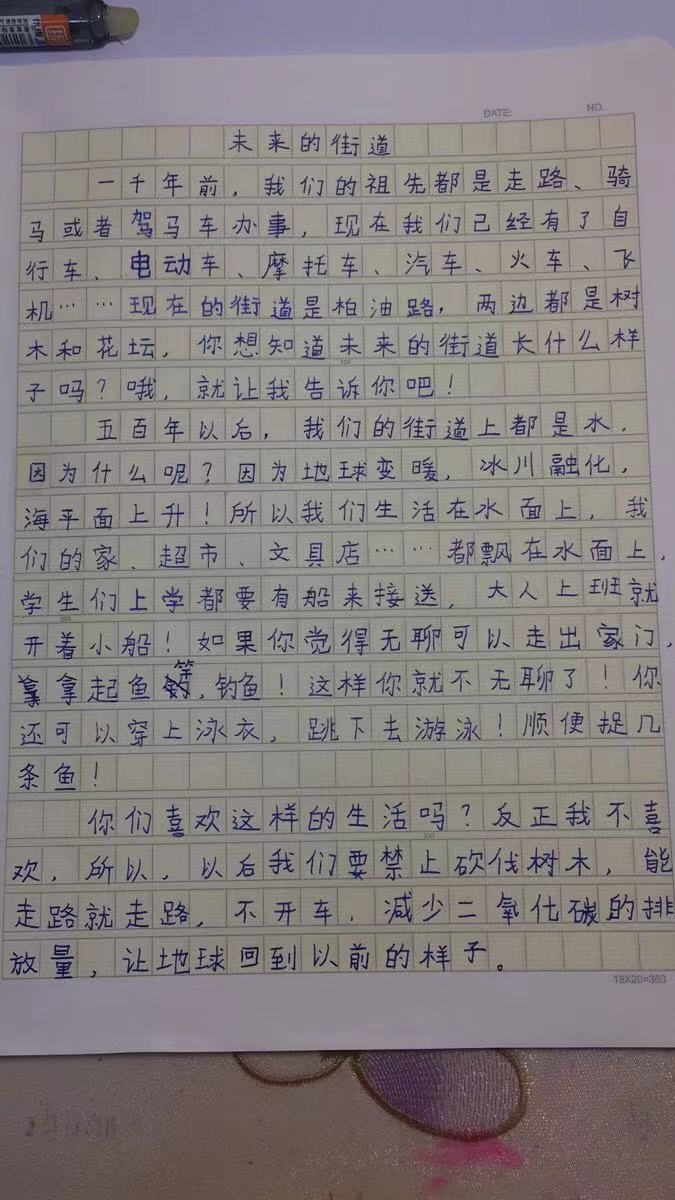 DATE: NO.
未来的街道
一千年前，我们的祖先都是走路、骑
马或者驾马车办事，现在我们已经有了自
行车、电动车、摩托车、汽车、火车、飞
机……现在的街道是柏油路，两边都是树
木和花坛，你想知道未来的街道长什么样
100
子吗？哦，就让我告诉你吧！
五百年以后，我们的街道上都是水，
因为什么呢？因为地球变暖，冰川融化，
海平面上升！所以我们生活在水面上，我
们的家、超市、文具店……都飘在水面上，
学生们上学都要有船来接送，大人上班就
200
开着小船！如果你觉得无聊可以走出家门，
拿起鱼竿，钓鱼！这样你就不无聊了！你
还可以穿上泳衣，跳下去游泳！顺便捉几
条鱼！
你们喜欢这样的生活吗？反正我不喜
300
欢，所以，以后我们要禁止砍伐树木，能
走路就走路，不开车，减少二氧化碳的排
放量，让地球回到以前的样子。
18X20=360